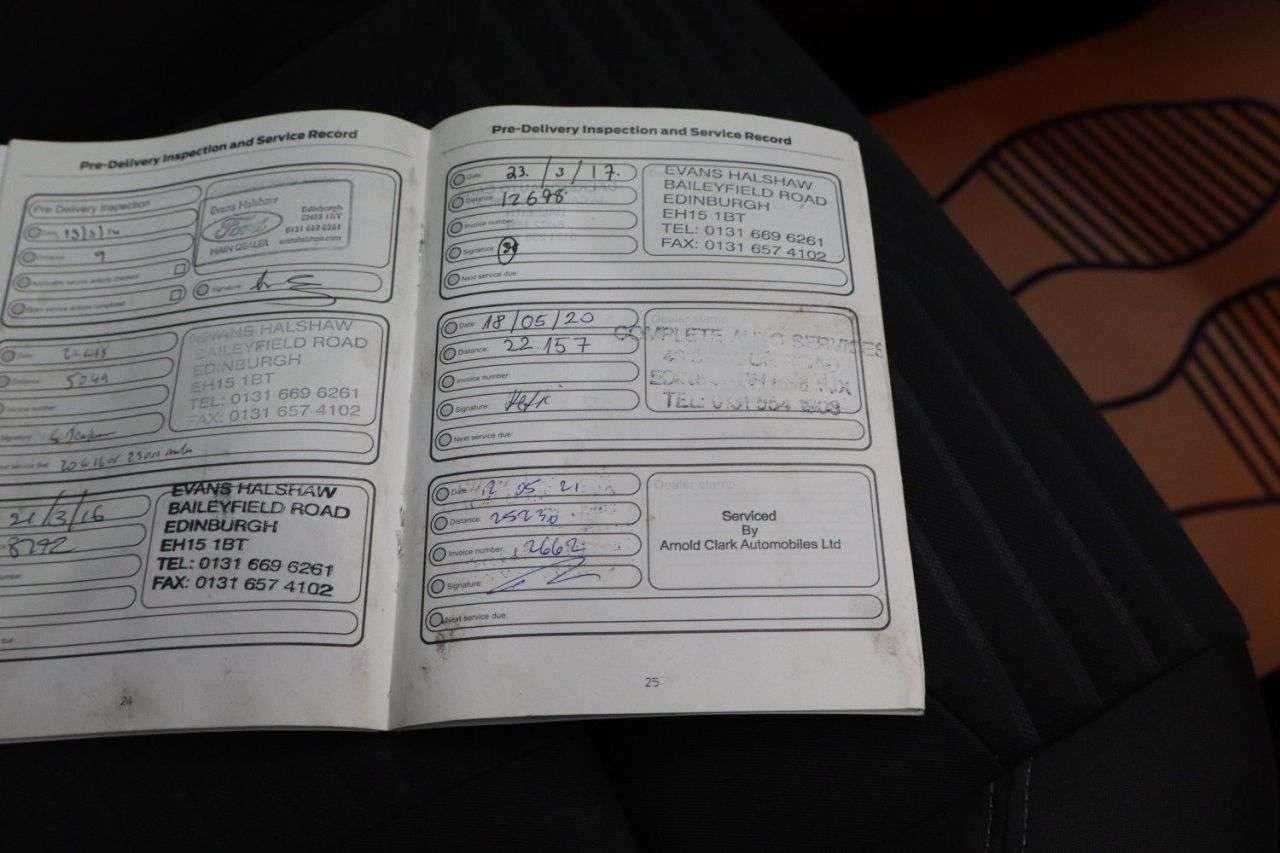 Pre-Delivery Inspection and Service Record
Pre Delivery Inspection
9
Signature:
Evans Halshaw
Ford
MAIN DEALER
Edinburgh
EH15 1BT
0131 669 6261
evanshalshaw.com
Date:
Distance:
5049
Invoice number:
Signature:
Next service due:
EVANS HALSHAW
BAILEYFIELD ROAD
EDINBURGH
EH15 1BT
TEL: 0131 669 6261
FAX: 0131 657 4102
21/3/16
8292
EVANS HALSHAW
BAILEYFIELD ROAD
EDINBURGH
EH15 1BT
TEL: 0131 669 6261
FAX: 0131 657 4102
24
Pre-Delivery Inspection and Service Record
Date: 23/3/17.
Distance: 12698
Invoice number:
Signature:
Next service due:
EVANS HALSHAW
BAILEYFIELD ROAD
EDINBURGH
EH15 1BT
TEL: 0131 669 6261
FAX: 0131 657 4102
Date: 18/05/20
Distance: 22.157
Invoice number:
Signature:
Next service due:
Dealer stamp
COMPLETE AUTO SERVICES
TEL: 0131 554
Date: 12 05 21
Distance: 25230
Invoice number: 12662
Signature:
Next service due:
Dealer stamp
Serviced
By
Arnold Clark Automobiles Ltd
25